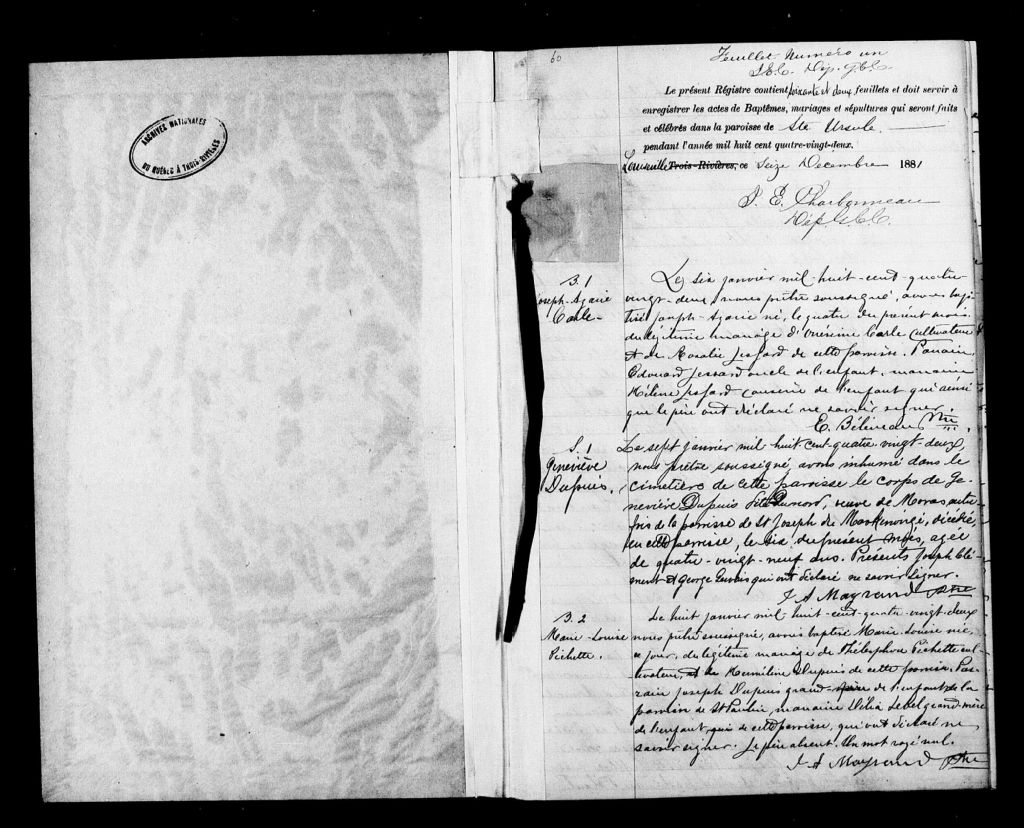 ARCHIVES NATIONALES
DU QUÉBEC À TROIS-RIVIÈRES
60
Feuillet Numéro un
J.E.C. Dép. G.C.C.
Le présent Régistre contient soixante et deux feuillets et doit servir à
enregistrer les actes de Baptêmes, mariages et sépultures qui seront faits
et célébrés dans la paroisse de Ste Ursule
pendant l'année mil huit cent quatre-vingt-deux.
Louiseville Trois-Rivières, ce Seize Decembre 1881
J. E. Charbonneau
Dép. G.C.C.
B. 1
Joseph-Azarie
Carle-
Le six janvier mil-huit-cent-quatre-
vingt-deux, nous prêtre soussigné, avons bap-
tisé Joseph-Azarie né, le quatre du présent mois,
du légitime mariage d'Onésime Carle cultivateur
et de Rosalie Lessard de cette paroisse. Parrain,
Edouard Lessard oncle de l'enfant, marraine
Hélène Lessard cousine de l'enfant qui ainsi
que le père ont déclaré ne savoir signer.
E. Béliveau Ptre
S. 1
Geneviève
Dupuis.
Le sept janvier mil huit-cent-quatre-vingt-deux,
nous prêtre soussigné, avons inhumé dans le
cimetière de cette paroisse le corps de Ge-
neviève Dupuis dite veuve de Moras, autre-
fois de la paroisse de St Joseph de Maskinongé, décédée,
en cette paroisse, le six du présent mois, agée
de quatre-vingt-neuf ans. Présents Joseph Clé-
ment et George Gervais qui ont déclaré ne savoir signer.
J A Mayrand Ptre
B. 2
Marie-Louise
Pichette.
Le huit janvier mil huit-cent-quatre-vingt-deux
nous prêtre soussigné, avons baptisé Marie-Louise née,
ce jour, du légitime mariage de Thélesphore Pichette cul-
tivateur, et de Herméline Dupuis de cette paroisse. Par-
rain Joseph Dupuis grand-père de l'enfant, de la
paroisse de St Paulin, marraine Délia Lebel grand-mère
de l'enfant, qui de cette paroisse, qui ont déclaré ne
savoir signer. Le père absent. Un mot rayé nul.
J A Mayrand Ptre